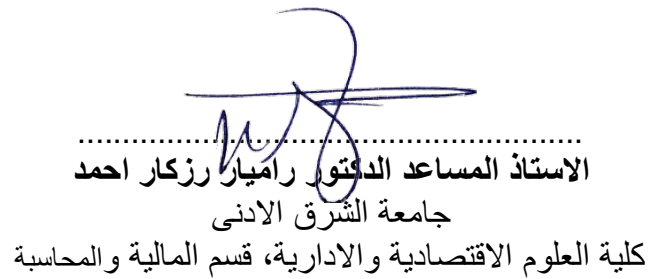 ......................................................
الاستاذ المساعد الدكتور راميار رزكار احمد
جامعة الشرق الادنى
كلية العلوم الاقتصادية والادارية، قسم المالية والمحاسبة